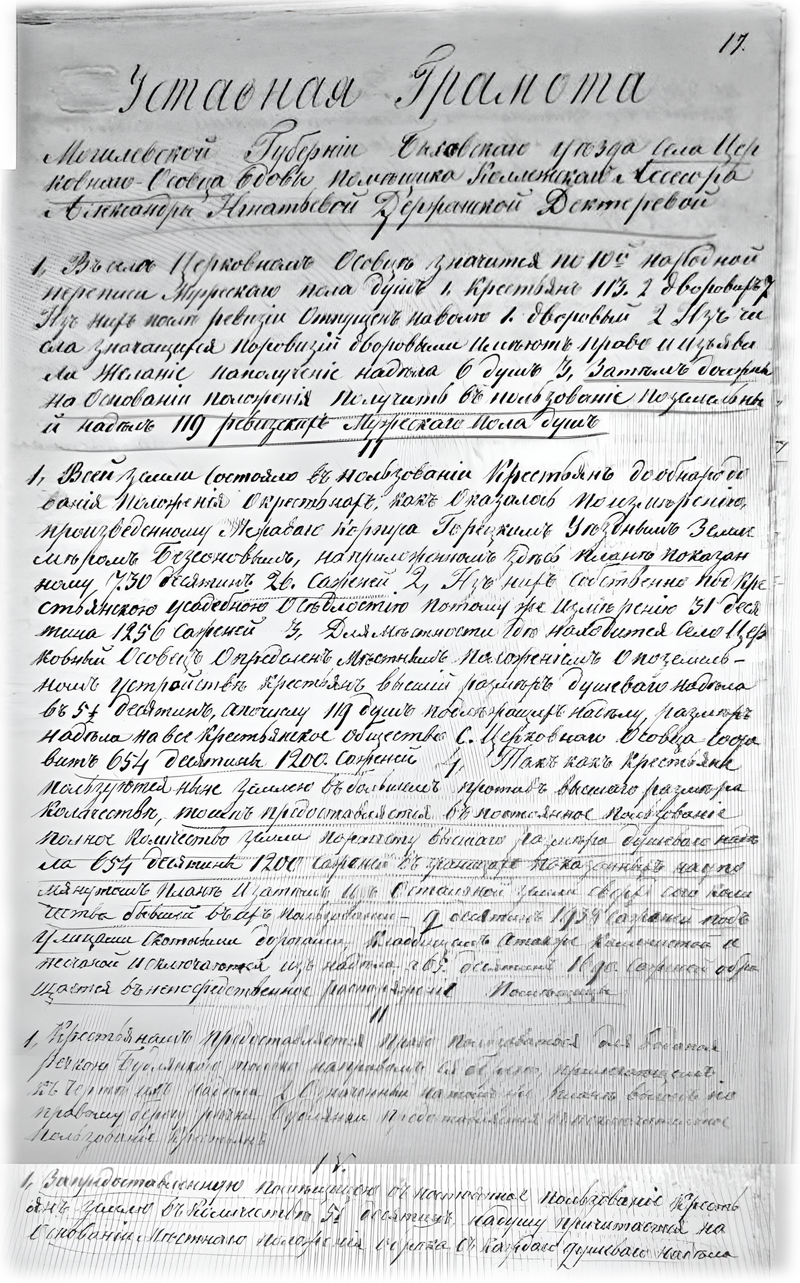 17.
Уставная Грамота
Могилевской Губерніи Быховскаго уѣзда Села Цер
ковнаго-Особца вдовы помѣщика Коллежскаго Ассесора
Александры Игнатьевой Держанкой Дехтеревой
1, Въ селѣ Церковномъ Особцѣ значится по 10й народной
переписи Мужескаго пола душъ 1. Крестьянъ 113. 2 дворовыхъ 7
Изъ нихъ послѣ ревизіи Отпущенъ наволю 1. дворовый 2 Изъ чи
сла значащихся поревизіи дворовыми имеютъ право и изъяви
ли желаніе наполученіе надѣла 6 душъ 3, Затѣмъ должны
на Основаніи положенія получить въ пользованіе поземельны
й надѣлъ 119 ревизскихъ Мужескаго пола душъ
II
1, Всей земли Состояло въ пользованіи Крестьянъ дообнародо
ванія Положенія Окрестьнахъ, какъ Оказалось поизмѣренію,
произведенному Корпуса Горецкимъ Уѣзднымъ Земле
мѣромъ Безсоновымъ, наприложенномъ здѣсь планѣ показан
ному 730 десятинъ 26. Саженей 2, Изъ нихъ собственно подкре
стьянскою усадебною Осѣдлостію потому же измѣренію 31 деся
тина 1256 Саженей 3, Для Мѣстности гдѣ находится Село Цер
ковный Особецъ Опредѣленъ Мѣстнымъ Положеніемъ Опоземель-
номъ устройствѣ крестьянъ высшій размѣръ душеваго надѣла
въ 5½ десятинъ, апочислу 119 душъ подлежащихъ надѣлу, размѣръ
надѣла навсе крестьянское общество с. Церковнаго Особца соста
витъ 654 десятины 1200. Саженей 4, Такъ какъ крестьяне
пользуются ныне землею въбольшемъ противъ высшаго размѣра
количествѣ, то имъ предоставляется въ постоянное пользованіе
полное количество земли поразчету высшаго размѣра душеваго надѣ
ла 654 десятины 1200 саженей въ границахъ показанныхъ наупо
мянутомъ планѣ Изатѣмъ изъ Остальной земли сверхъ сего коли
чества бывшей въихъ пользованіи - 9 десятинъ 1938 саженей подъ
улицами скотными дорогами, Кладбищемъ Атакже каменистой и
песчаной исключаются изъ надѣла, а 65 десятинъ саженей обра
щается въ непосредственное распоряженіе Помѣщицы
II
1, Крестьянамъ предоставляется право пользоваться для водопоя
рѣчкою только направомъ ея берегу, прилежащемъ
къ чертѣ ихъ надѣла 2 Означенный натомъ же планѣ по
правому берегу рѣчки предоставляется въ исключительное
пользованіе крестьянъ
IV.
1, Запредоставленную помѣщицею въ постоянное пользованіе Кресть
янъ землю въ Количествѣ 5½ десятинъ, надушу причитается на
Основаніи Мѣстнаго положенія оброка съ каждаго душеваго надѣла